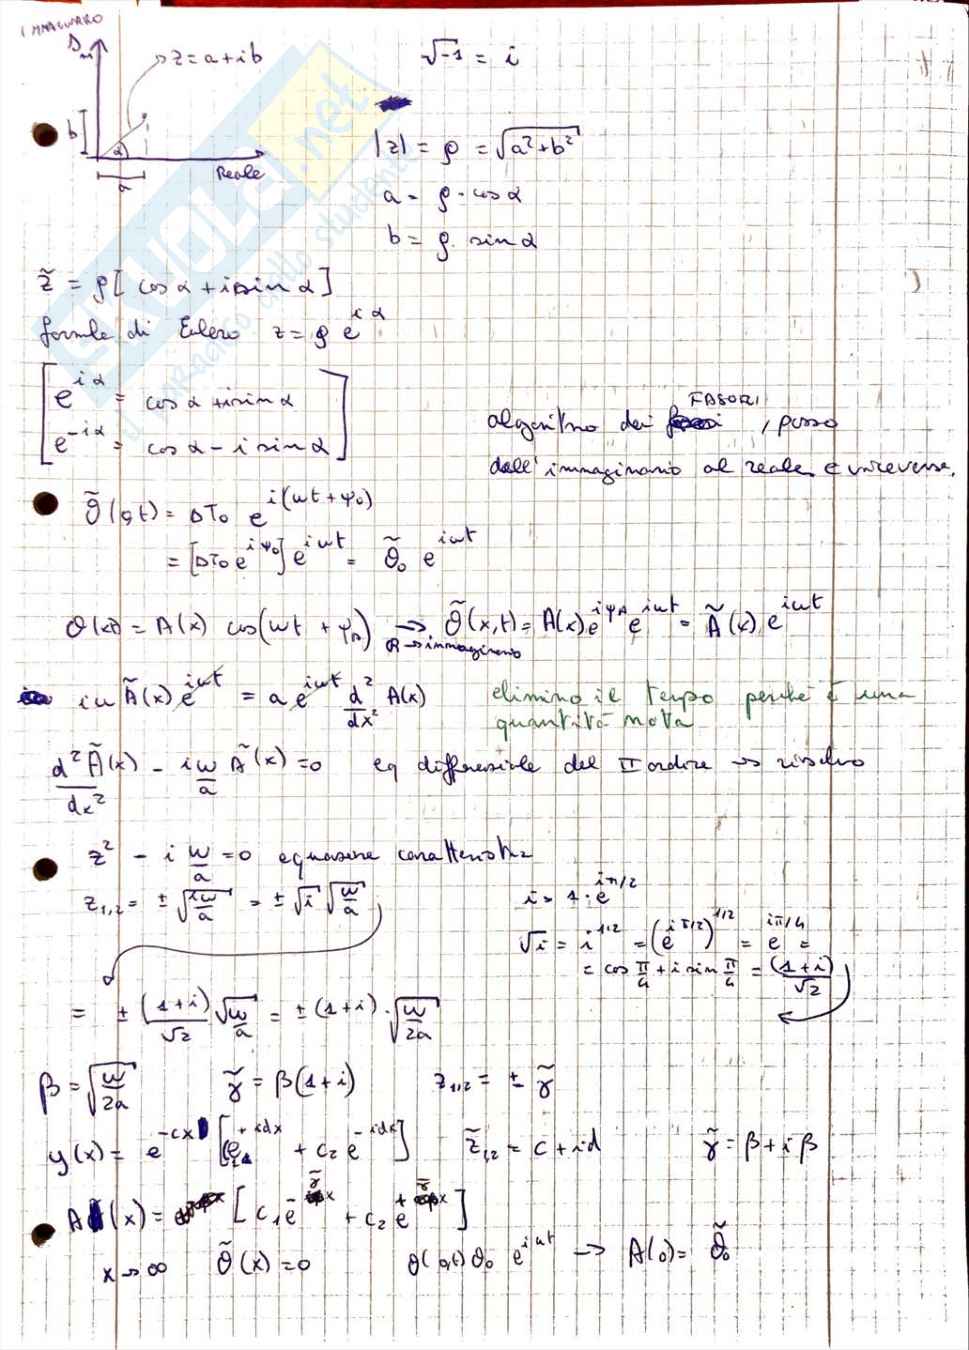 IMMAGINARIO
Im
z = a + ib
√-1 = i
b
α
Reale
a
|z| = ρ = √(a²+b²)
a = ρ · cos α
b = ρ · sin α
z̃ = ρ [ cos α + i sin α ]
formule di Eulero z = ρ e^{iα}
e^{iα} = cos α + i sin α
e^{-iα} = cos α - i sin α
algoritmo dei FASORI, passo
dall'immaginario al reale e viceversa.
θ̃(0,t) = ΔT₀ e^{i(ωt + φ₀)}
= [ΔT₀ e^{iφ₀}] e^{iωt} = θ̃₀ e^{iωt}
θ(xt) = A(x) cos(ωt + φ_A) → θ̃(x,t) = A(x) e^{iφ_A} e^{iωt} = Ã(x) e^{iωt}
R → immaginario
iω Ã(x) e^{iωt} = a e^{iωt} d²/dx² A(x)
elimino il tempo perché è una
quantità nota
d²Ã(x)/dx² - iω/a Ã(x) = 0 eq differenziale del II ordine → risolvo
z² - i ω/a = 0 equazione caratteristica
z₁,₂ = ± √(iω/a) = ± √i √(ω/a)
i = 1 · e^{iπ/2}
√i = i^{1/2} = (e^{iπ/2})^{1/2} = e^{iπ/4} =
= cos π/4 + i sin π/4 = (1+i)/√2
= ± (1+i)/√2 √(ω/a) = ± (1+i) · √(ω/2a)
β = √(ω/2a) γ̃ = β(1+i) z₁,₂ = ± γ̃
y(x) = e^{-cx} [c₁e^{+idx} + c₂ e^{-idx}] z̃₁,₂ = c + id γ̃ = β + iβ
A(x) = [c₁e^{-γ̃x} + c₂ e^{+γ̃x}]
x → ∞ θ̃(x) = 0 θ(0,t) θ₀ e^{iωt} → A(0) = θ̃₀